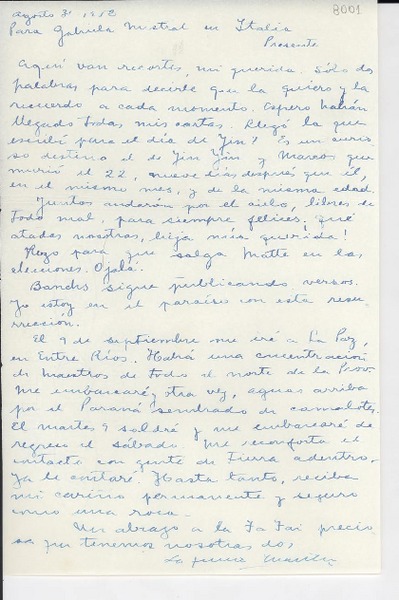 8001
agosto 31 1952
Para Gabriela Mistral en Italia
Presente
Aquí van recortes, mi querida. Sólo dos
palabras para decirle que la quiero y la
recuerdo a cada momento. Espero habrán
llegado todas mis cartas. Llegó la que
escribí para el día de Yin? Es un curio-
so destino el de Yin Yin y Marcos que
murió el 22, nueve días después que él,
en el mismo mes, y de la misma edad.
Juntos andarán por el cielo, libres de
todo mal, para siempre felices. Qué
atadas nosotras, hija mía querida!
Ruego para que salga Matte en las
elecciones. Ojalá.
Banchs sigue publicando versos.
Yo estoy en el paraíso con esta resu-
rrección.
El 9 de septiembre me iré a La Paz,
en Entre Ríos. Habrá una concentración
de Maestros de todo el norte de la Prov.
Me embarcaré, otra vez, aguas arriba
por el Paraná sembrado de camalotes.
El martes 9 saldré y me embarcaré de
regreso el sábado. Me reconforta el
contacto con gente de tierra adentro.
Ya le contaré. Hasta tanto, reciba
mi cariño permanente y seguro
como una roca.
Un abrazo a la
que tenemos nosotras dos
La